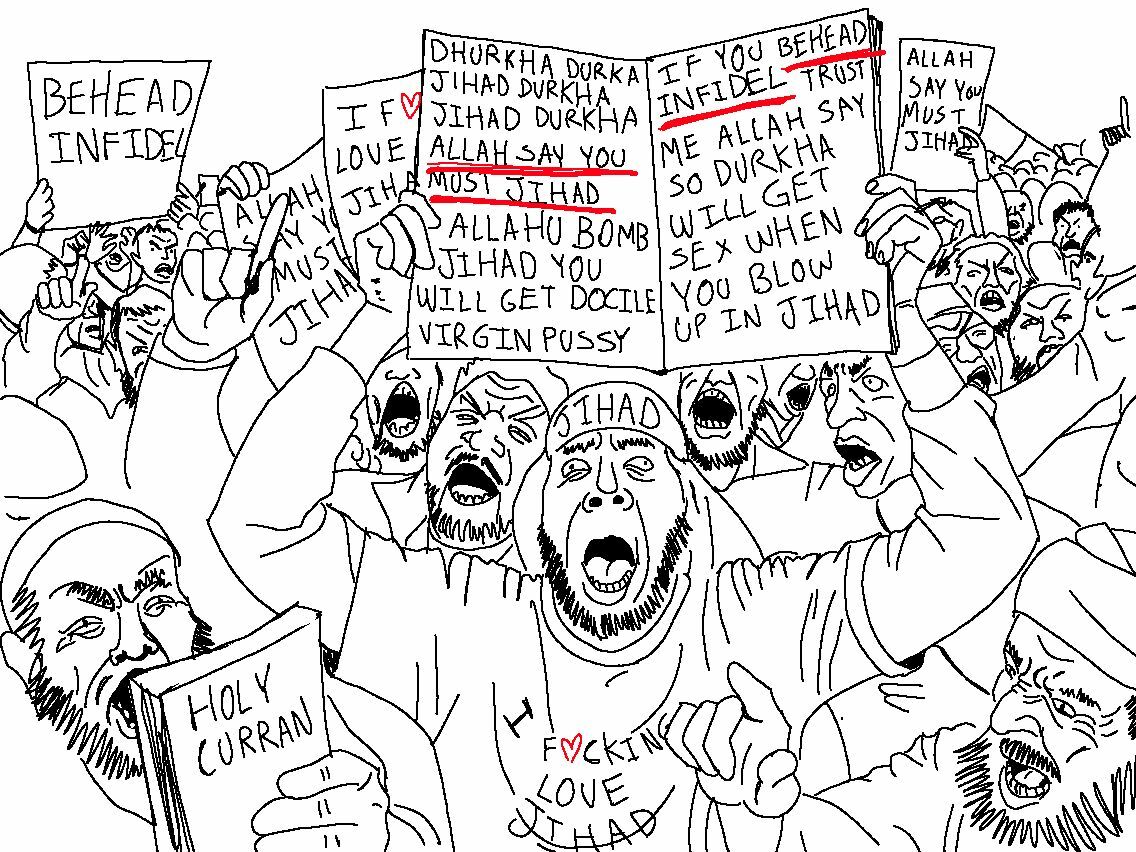 BEHEAD
INFIDEL
I F♡
LOVE
JIHA
ALLAH
AY YO
MUST
JIHA
DHURKHA DURKA
JIHAD DURKHA
JIHAD DURKHA
ALLAH SAY YOU
MUST JIHAD
ALLAHU BOMB
JIHAD YOU
WILL GET DOCILE
VIRGIN PUSSY
IF YOU BEHEAD
INFIDEL TRUST
ME ALLAH SAY
SO DURKHA
WILL GET
SEX WHEN
YOU BLOW
UP IN JIHAD
ALLAH
SAY YOU
MUST
JIHAD
JIHAD
HOLY
CURRAN
I
F♡CKIN
LOVE
JIHAD